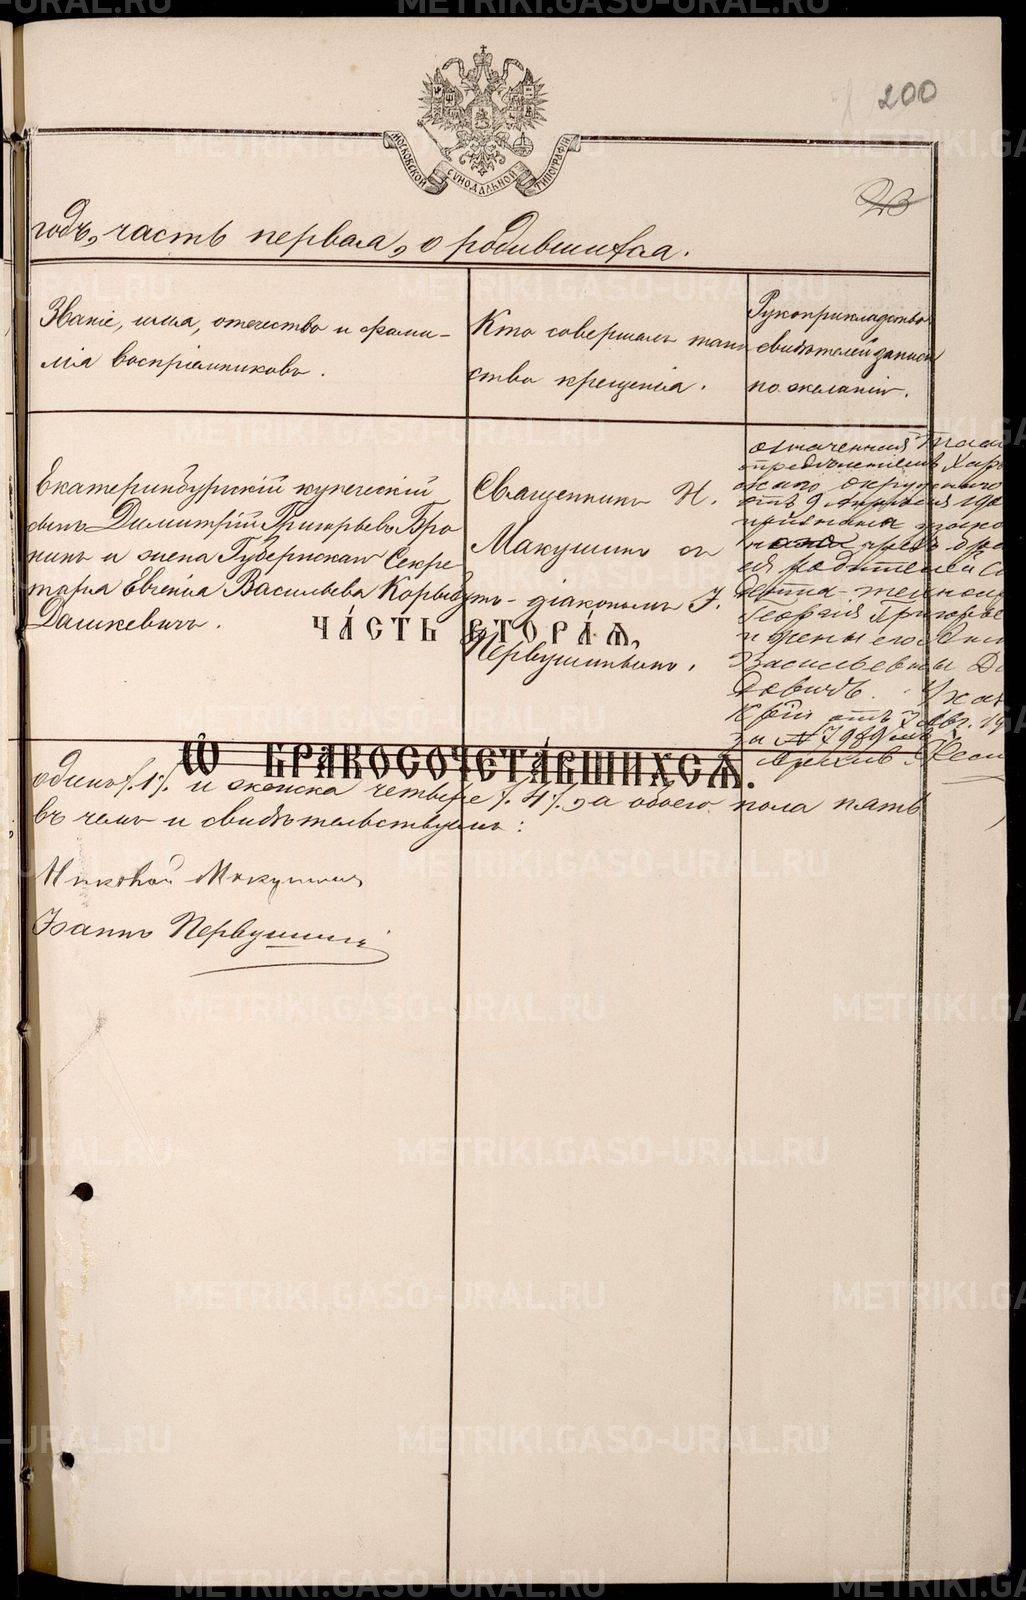 200
МОСКОВСКОЙ СѴНОДАЛЬНОЙ ТИПОГРАФІИ
20
годъ, часть первая, о родившихся.
Званіе, имя, отечество и фами-
лія воспріемниковъ.
Кто совершалъ таин
ство крещенія.
Рукоприкладство
свидѣтелей записи
по желанію.
Екатеринбургскій купеческій
сынъ Димитрій Григорьевъ Бро
нинъ и жена Губернскаго Секре-
таря Евгенія Васильева Корыбутъ-
Дашкевичъ.
Священникъ Н.
Макушинъ съ
діакономъ І.
Первушинымъ.
означенная
опредѣленіемъ Харь
окружного
отъ 9
признана
чрезъ бра
ея родителей
Георгія Григорье
и жены его
Васильевны
довичъ. Указ
отъ 7 Авг. 19
за № 7989
ЧА́СТЬ ВТОРА́Ѧ,
Ѡ БРАКОСОЧЕТА́ВШИХСѦ.
одинъ /.1/. и женска четыре /.4/., а обоего пола пять
въ чемъ и свидѣтельствуемъ:
Николай Макушинъ
Іоаннъ Первушинъ
METRIKI.GASO-URAL.RU